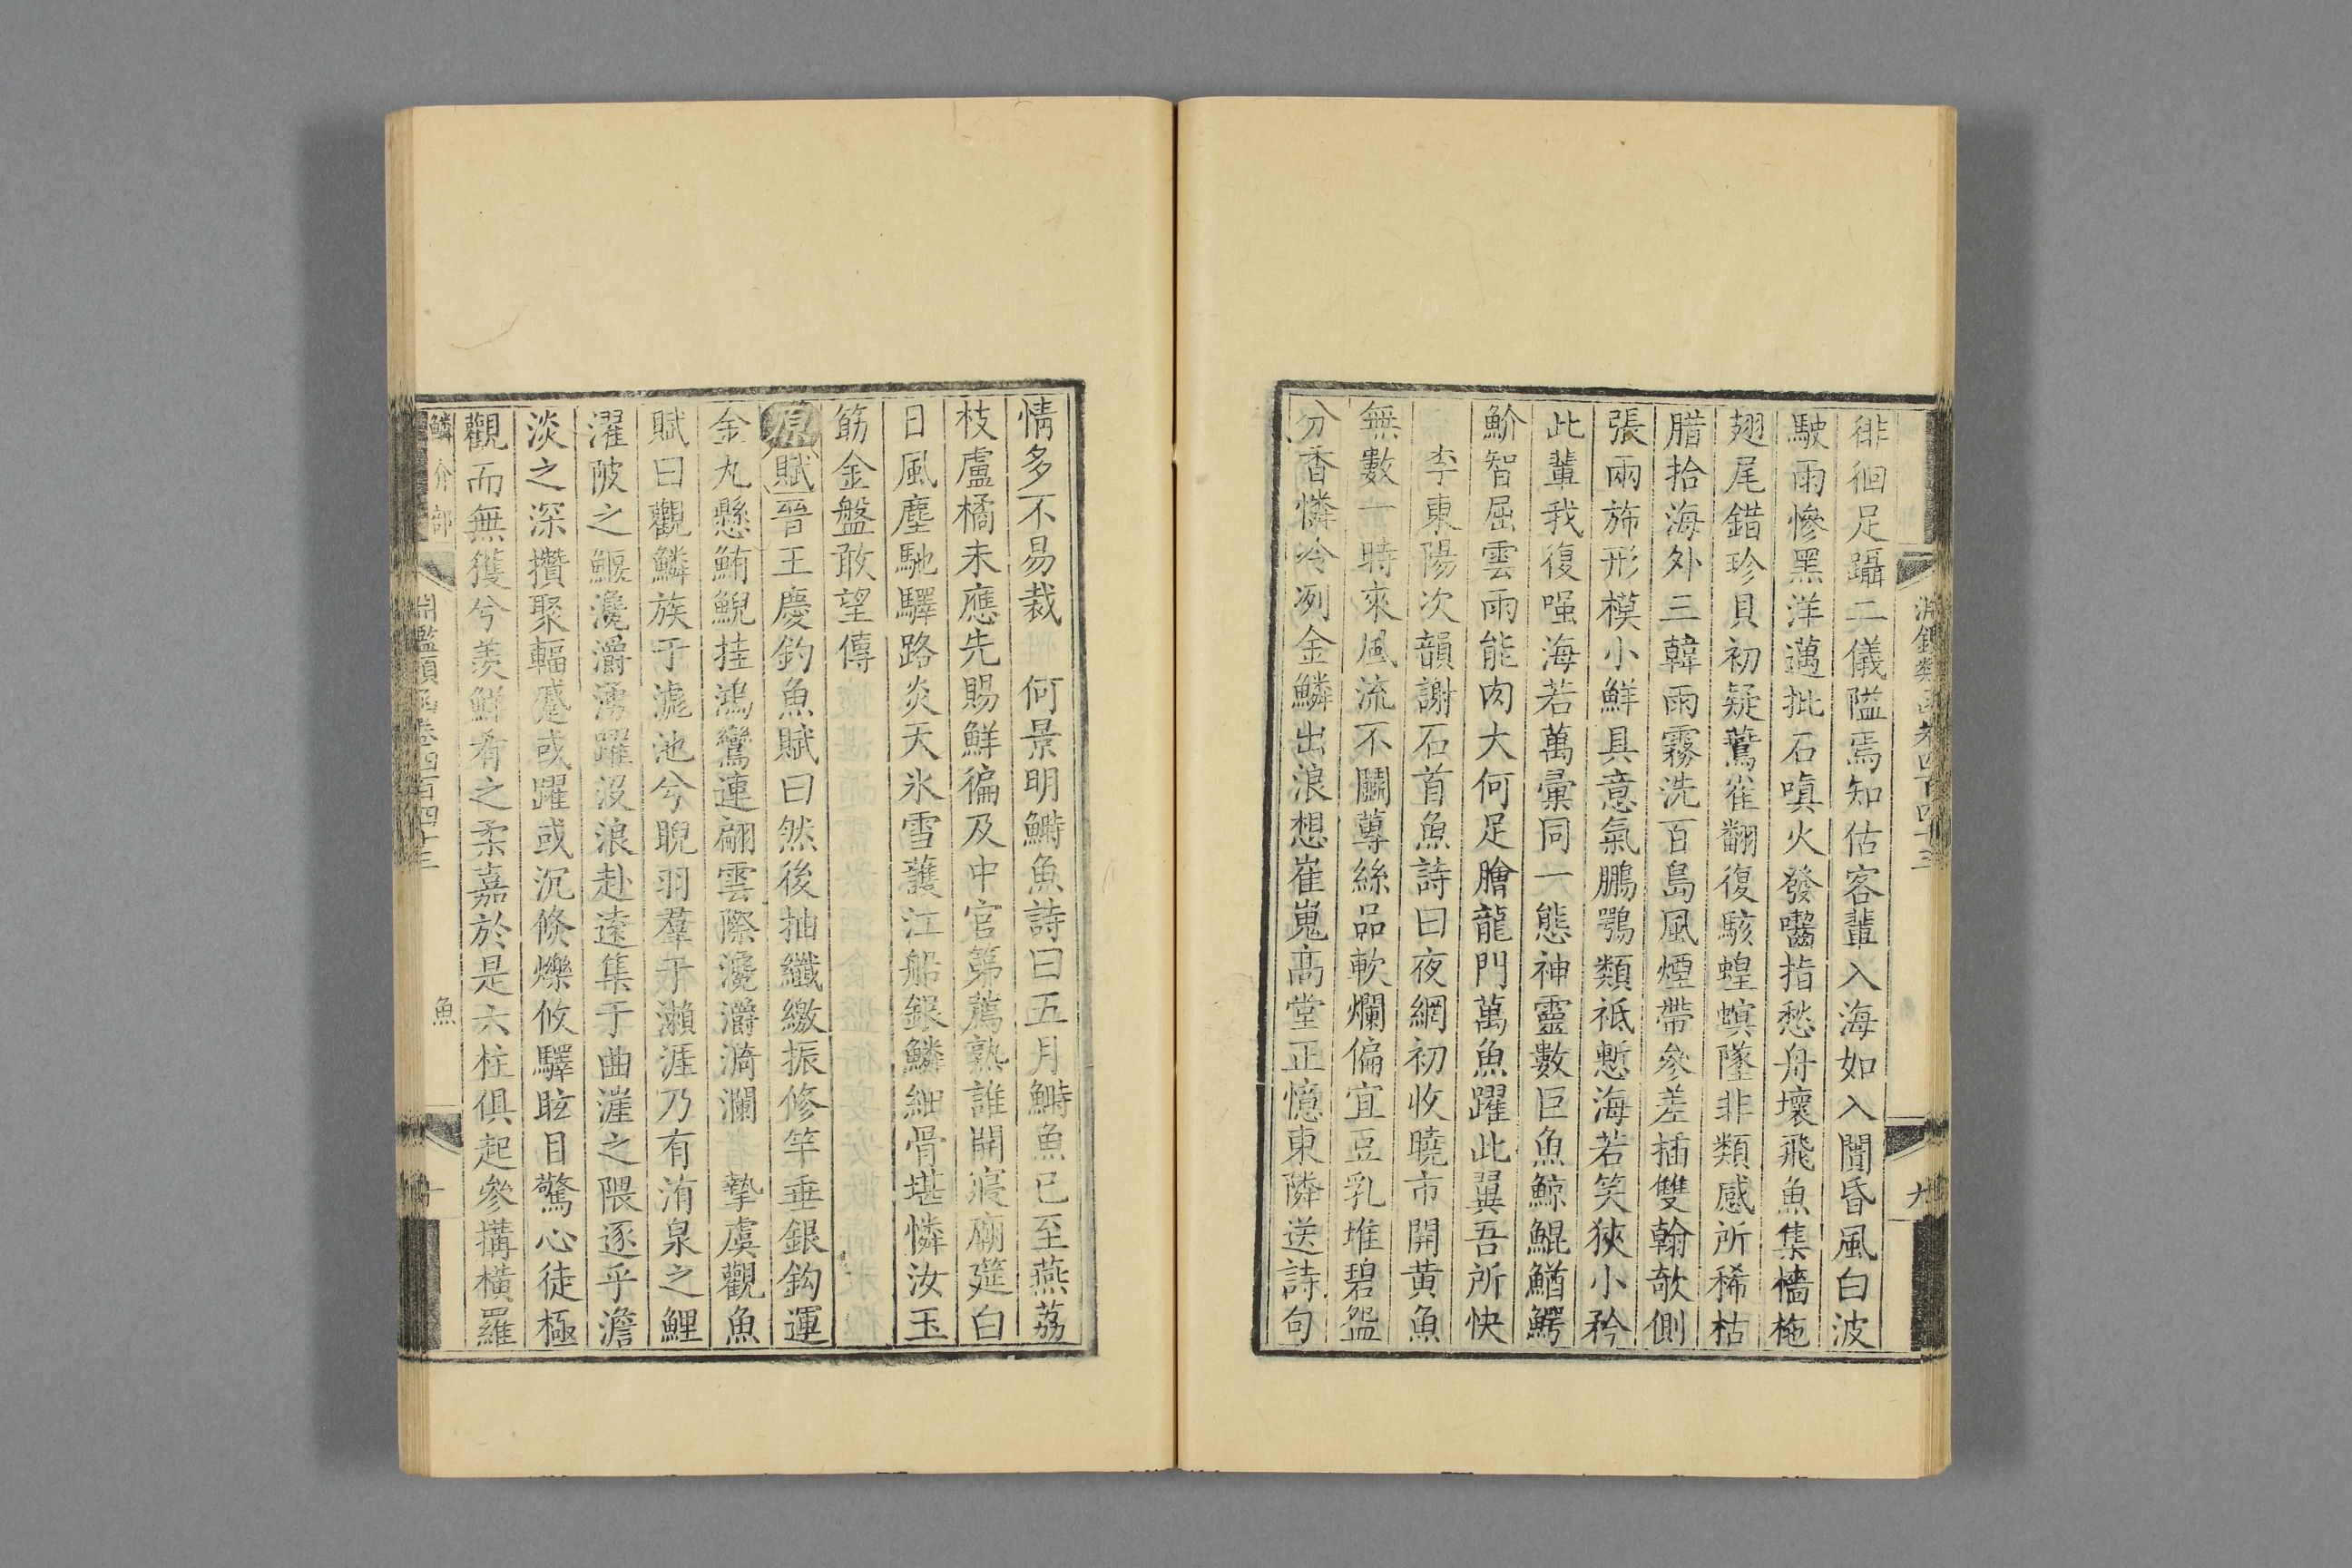 淵鑑類函卷四百四十三
九
徘徊足躡二儀隘焉知估客輩入海如入閩昏風白波
駛雨慘黑洋邁批石嗔火發囓指愁舟壞飛魚集檣柂
翅尾錯珍貝初疑鷰雀翻復駭蝗螟墜非類感所稀枯
腊拾海外三韓雨霧洗百島風煙帶參差插雙翰欹側
張兩斾形模小鮮具意氣鵬鶚類祇慙海若笑狹小矜
此輩我復嗤海若萬彙同一態神靈數巨魚鯨鯤鰌鰐
魪智屈雲雨能肉大何足膾龍門萬魚躍此翼吾所快
李東陽次韻謝石首魚詩曰夜網初收曉市開黃魚
無數一時來風流不鬭蓴絲品軟爛偏宜豆乳堆碧盌
分香憐冷冽金鱗出浪想崔嵬高堂正憶東隣送詩句
情多不易裁 何景明鰣魚詩曰五月鰣魚已至燕荔
枝盧橘未應先賜鮮徧及中官第薦熟誰開寢廟筵白
日風塵馳驛路炎天氷雪護江船銀鱗細骨堪憐汝玉
筯金盤敢望傳
原賦晉王慶釣魚賦曰然後抽纖繳振修竿垂銀鈎運
金丸懸鮪鯢挂鴻鸞連翩雲際瀺灂漪瀾 摯虞觀魚
賦曰觀鱗族于滮池兮睨羽羣于瀨涯乃有洧泉之鯉
濯陂之鰋瀺灂湧躍沒浪赴遠集于曲漄之隈逐乎澹
淡之深攢聚輻蹙或躍或沉倏爍攸驛眩目驚心徒極
觀而無獲兮羨鮮肴之柔嘉於是六柱俱起參搆橫羅
鱗介部
淵鑑類函卷四百四十三
魚
十